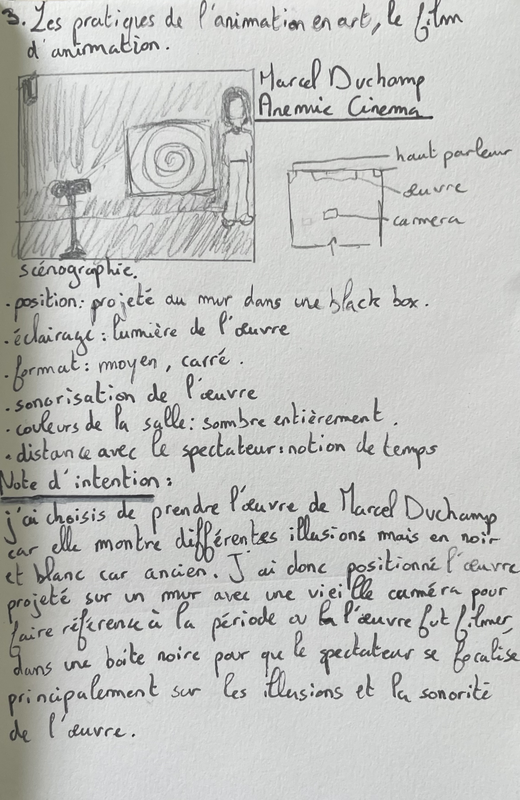 3. Les pratiques de l'animation en art, le film
d'animation.
Marcel Duchamp
Anemic Cinema
haut parleur
œuvre
camera
scénographie.
. position: projeté au mur dans une black box.
. éclairage: lumière de l'œuvre
. format: moyen, carré.
. sonorisation de l'œuvre
. couleurs de la salle: sombre entièrement.
. distance avec le spectateur: notion de temps
Note d'intention:
j'ai choisis de prendre l'œuvre de Marcel Duchamp
car elle montre différentes illusions mais en noir
et blanc car ancien. J'ai donc positionné l'œuvre
projeté sur un mur avec une vieille caméra pour
faire référence à la période ou l'œuvre fut filmer,
dans une boite noire pour que le spectateur se focalise
principalement sur les illusions et la sonorité
de l'œuvre.